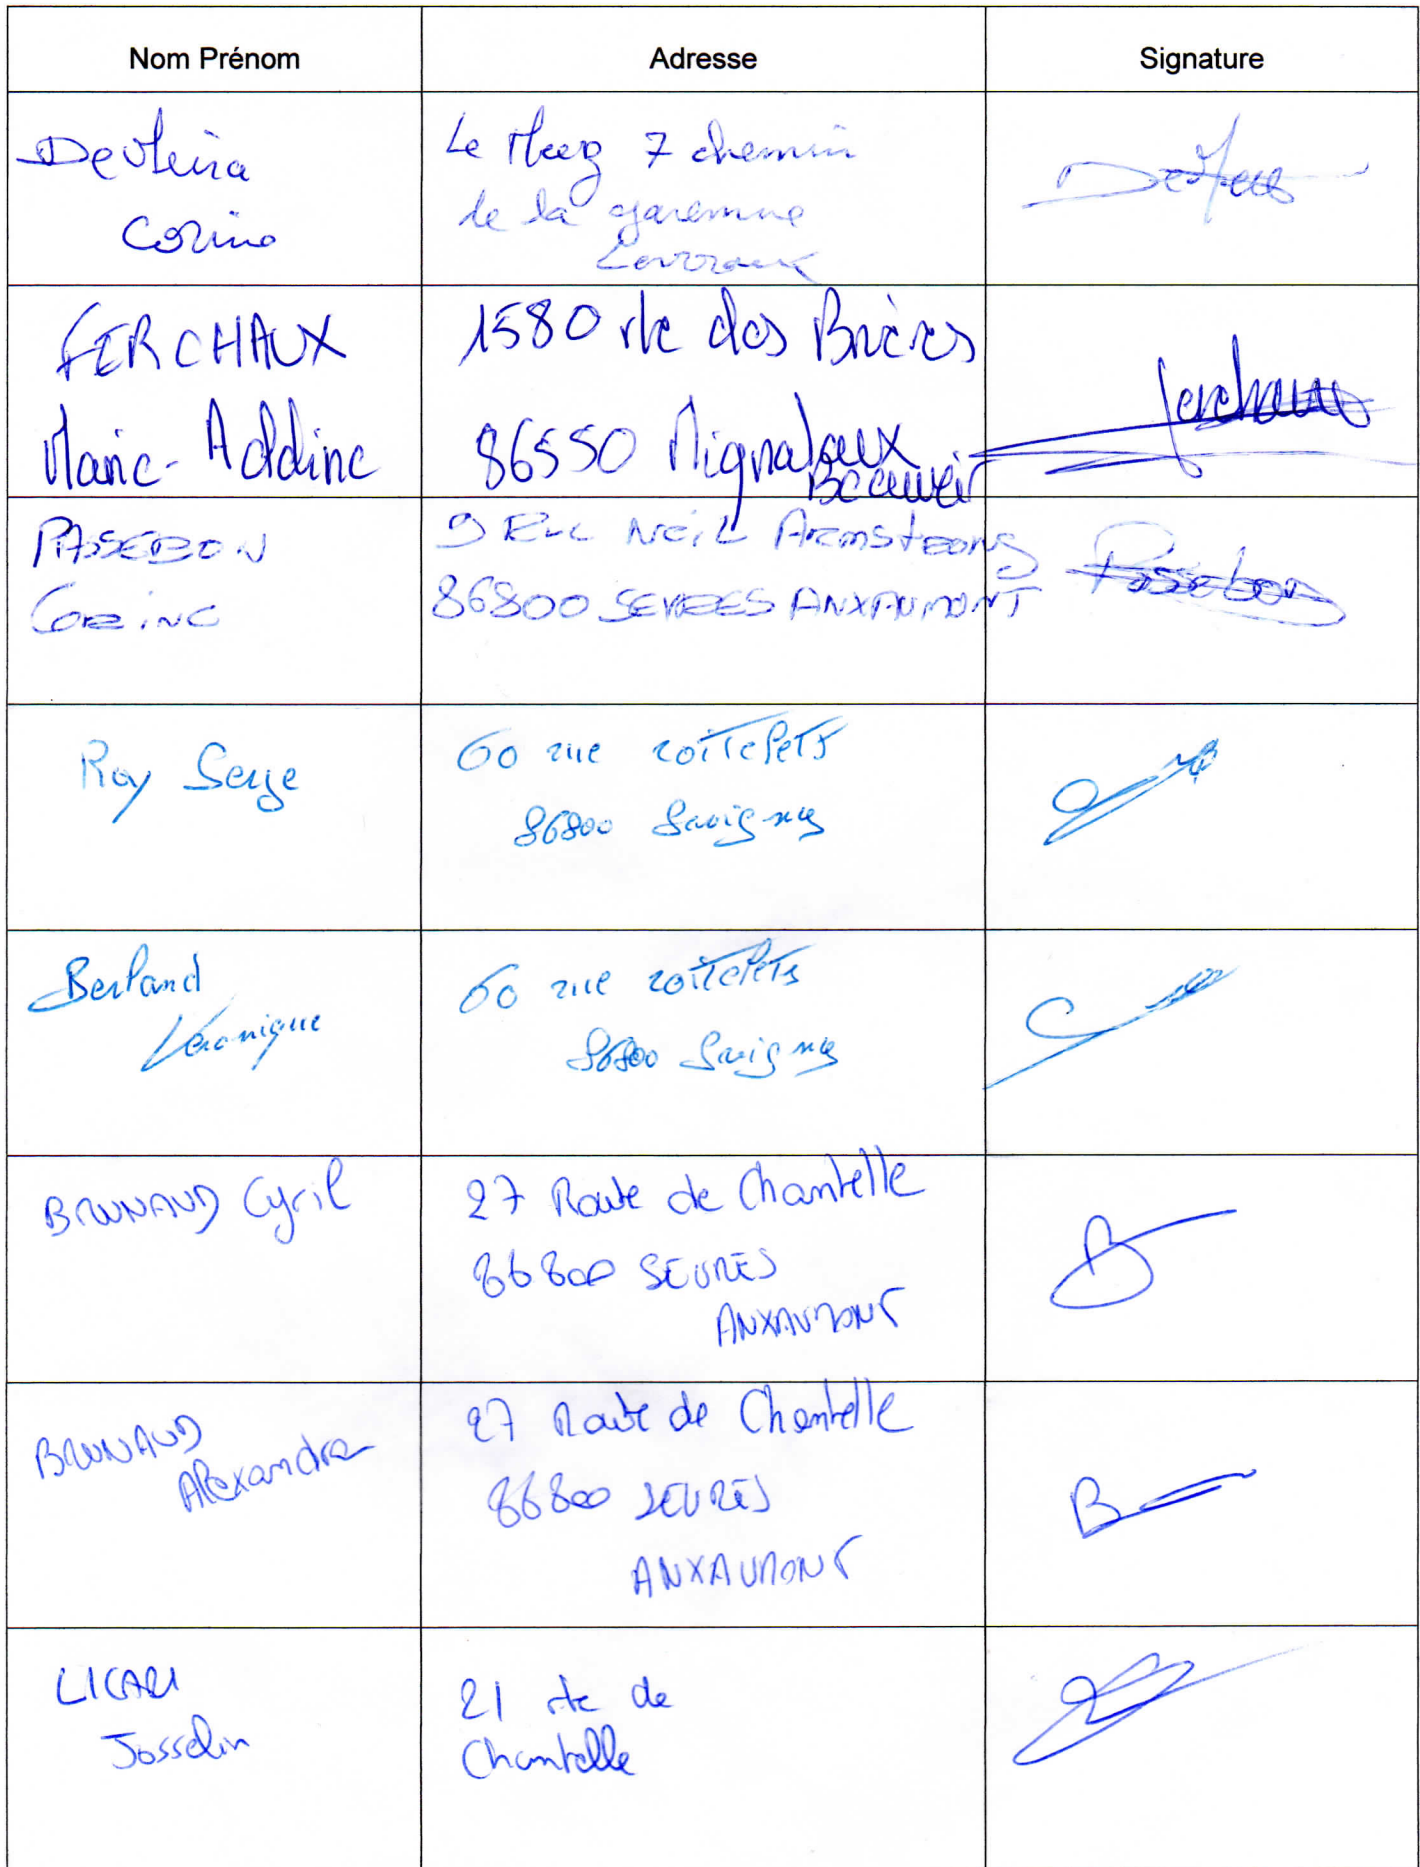 Nom Prénom
Adresse
Signature
Corine
7 chemin
de la garenne
FERCHAUX
Marie-Adeline
1580 rte des Brières
86550 Mignaloux
Beauvoir
Ferchaux
PASSEBON
Corine
9 RUE NEIL ARMSTRONG
86800 SEVRES ANXAUMONT
Passebon
Roy Serge
60 rue roitelets
86800 Savigny
Berland
Véronique
60 rue roitelets
86800 Savigny
BRUNAUD Cyril
27 Route de Chantelle
86800 SEVRES
ANXAUMONT
B
BRUNAUD
Alexandra
27 Route de Chantelle
86800 SEVRES
ANXAUMONT
B
LICARI
Josselin
21 rte de
Chantelle